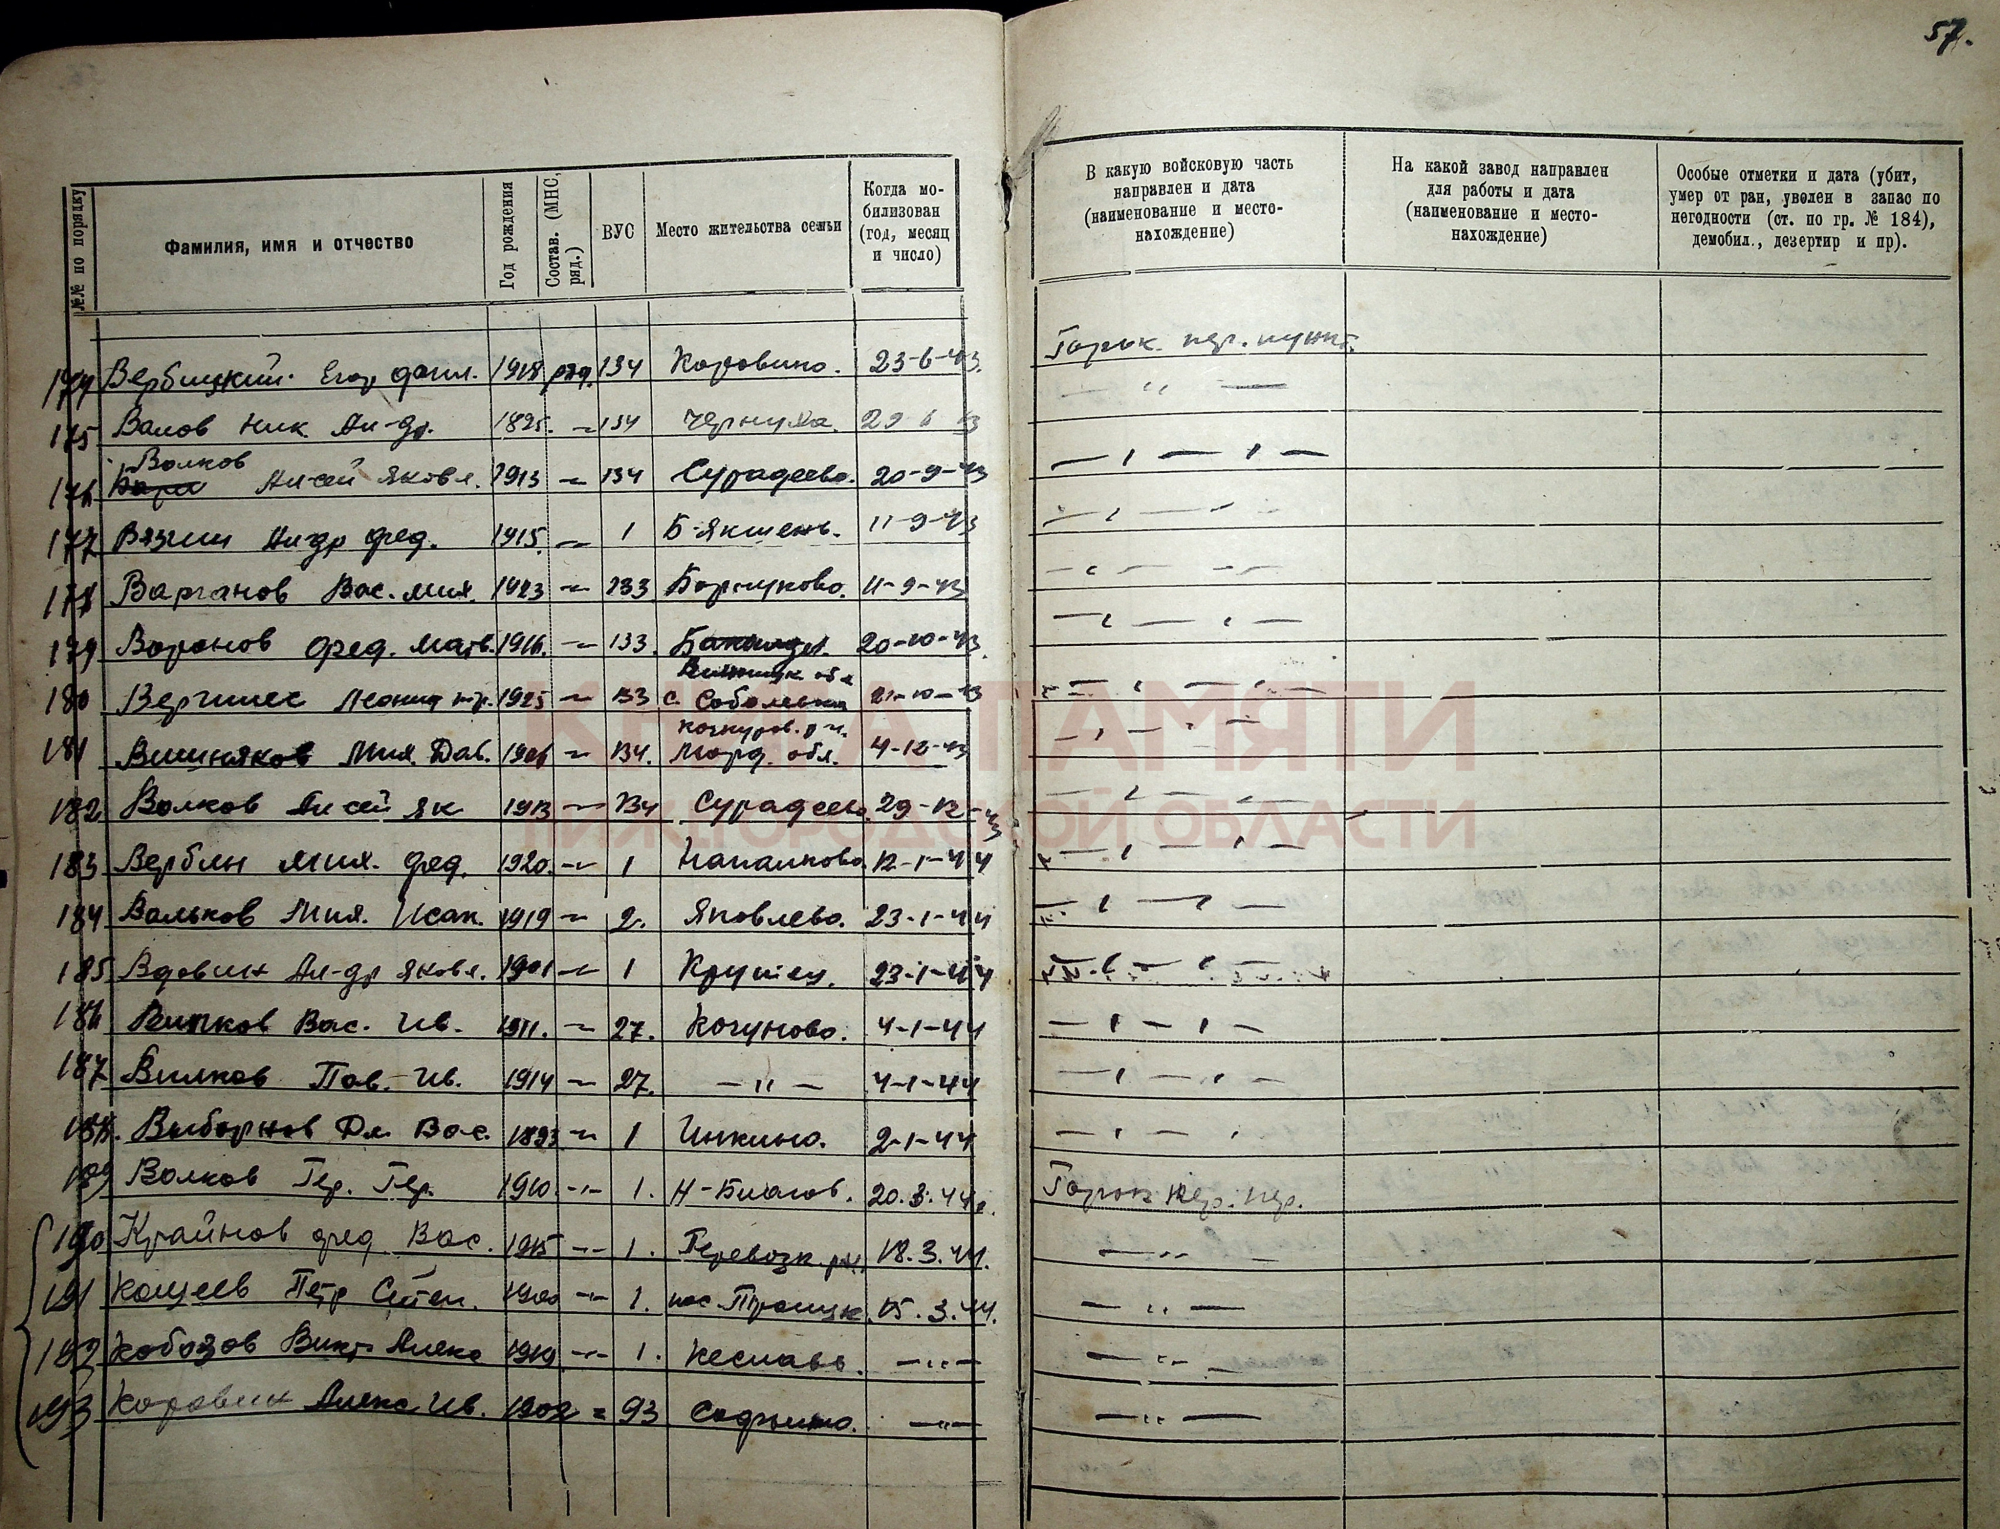 57.
№№ по порядку
Фамилия, имя и отчество
Год рождения
Состав. (МНС, ряд.)
ВУС
Место жительства семьи
Когда мобилизован (год, месяц и число)
В какую войсковую часть направлен и дата (наименование и местонахождение)
На какой завод направлен для работы и дата (наименование и местонахождение)
Особые отметки и дата (убит, умер от ран, уволен в запас по негодности (ст. по гр. № 184), демобил., дезертир и пр).
174 Вербицкий Егор 1918 ряд. 134 Коровино. 23-6-43. Горьк. пер. пункт.
175 Валов Ник. Ал-др. 134 Чернуха. — " —
Волков
176 Ал-сей Яковл. 1913 — 134 Сурадеево. 20-9-43
177 Вязнин Ал-др Фед. 1915. — 1 Б-Якшень. 11-9-43
178 Варганов Вас. Мих. 1923 — 133 Борнуково. 11-9-43
179 Воронов Фед. Матв. — 133. 20-10-43.
обл
180 Леонид — 133 с. 21-10-43
181 Вишняков Мих. Дав. — 134. Морд. обл. 4-12-43
182 Волков Ал-сей Як 1913 — 134 Сурадеево. 29-12-43
183 Вербин Мих. Фед. 1920. — 1 12-1-44
184 Вальков Мих. Исак. 1919 — 2. Яковлево. 23-1-44
185 Вдовин Ал-др Яковл. 1901 — 1 Крутец. 23-1-44
186 Вилков Вас. Ив. 1911. — 27. Кочуново. 4-1-44
187 Вилков Пав. Ив. 1914 — 27. — " — 4-1-44
188. Выборнов Вас. 1893 — 1 Инкино. 2-1-44
189 Волков Гер. Гер. 1910. — 1. 20.3.44 Горьк пер. пер.
190 Крайнов Фед Вас. 1915 — 1. Перевозк. 18.3.44. — " —
191 Кощеев Петр Степ. 1900 — 1. пос. Троицк. 15.3.44. — " —
192 Кобозов Викт. Алекс — 1. — " — — " —
193 Коровин Алекс Ив. 1902 = 93 — " — — " —
КНИГА ПАМЯТИ
НИЖЕГОРОДСКОЙ ОБЛАСТИ